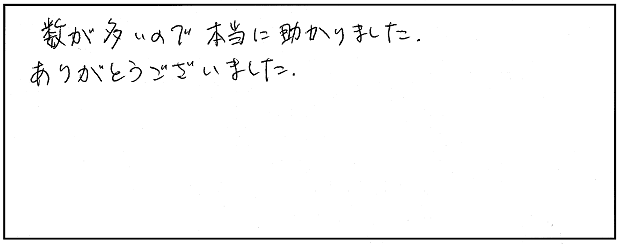 数が多いので本当に助かりました.
ありがとうございました.